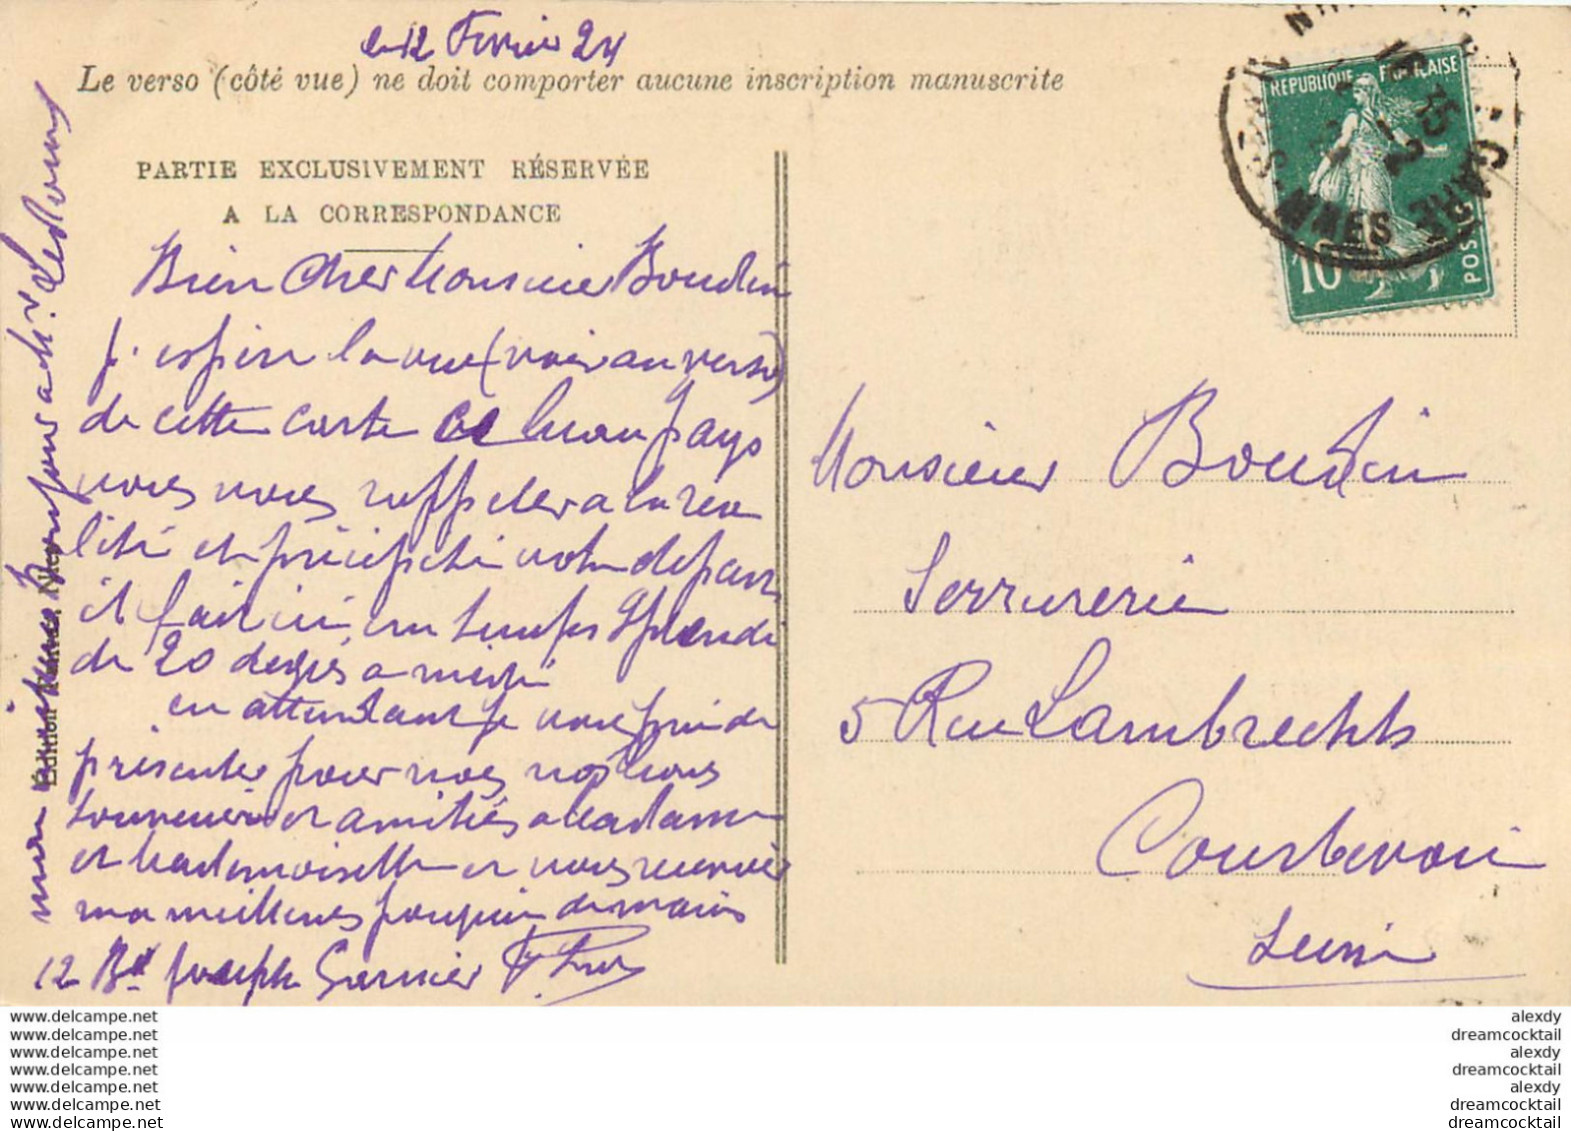 le 12 Fevrier 24
Le verso (côté vue) ne doit comporter aucune inscription manuscrite
PARTIE EXCLUSIVEMENT RÉSERVÉE
A LA CORRESPONDANCE
Bien Cher Monsieur Boudin
j'espère la vue (voir au verso)
de cette carte ce beau pays
vous vous rappeler a la réa
lité et précipité votre départ
il fait ici un temps splendi
de 20 degrés a midi
en attendant je vous prie de
présenter pour nous nos bons
souvenirs et amitiés a Madame
et Mademoiselle et vous recevoir
ma meilleures poignée de mains
12 Bd Joseph Garnier
bonjour a Mr
Edition
RÉPUBLIQUE FRANÇAISE
10
POSTES
GARE
Monsieur Boudin
Serrurerie
5 Rue Lambrechts
Courbevoie
Seine
www.delcampe.net
www.delcampe.net
www.delcampe.net
www.delcampe.net
www.delcampe.net
www.delcampe.net
www.delcampe.net
alexdy
dreamcocktail
alexdy
dreamcocktail
alexdy
dreamcocktail
dreamcocktail